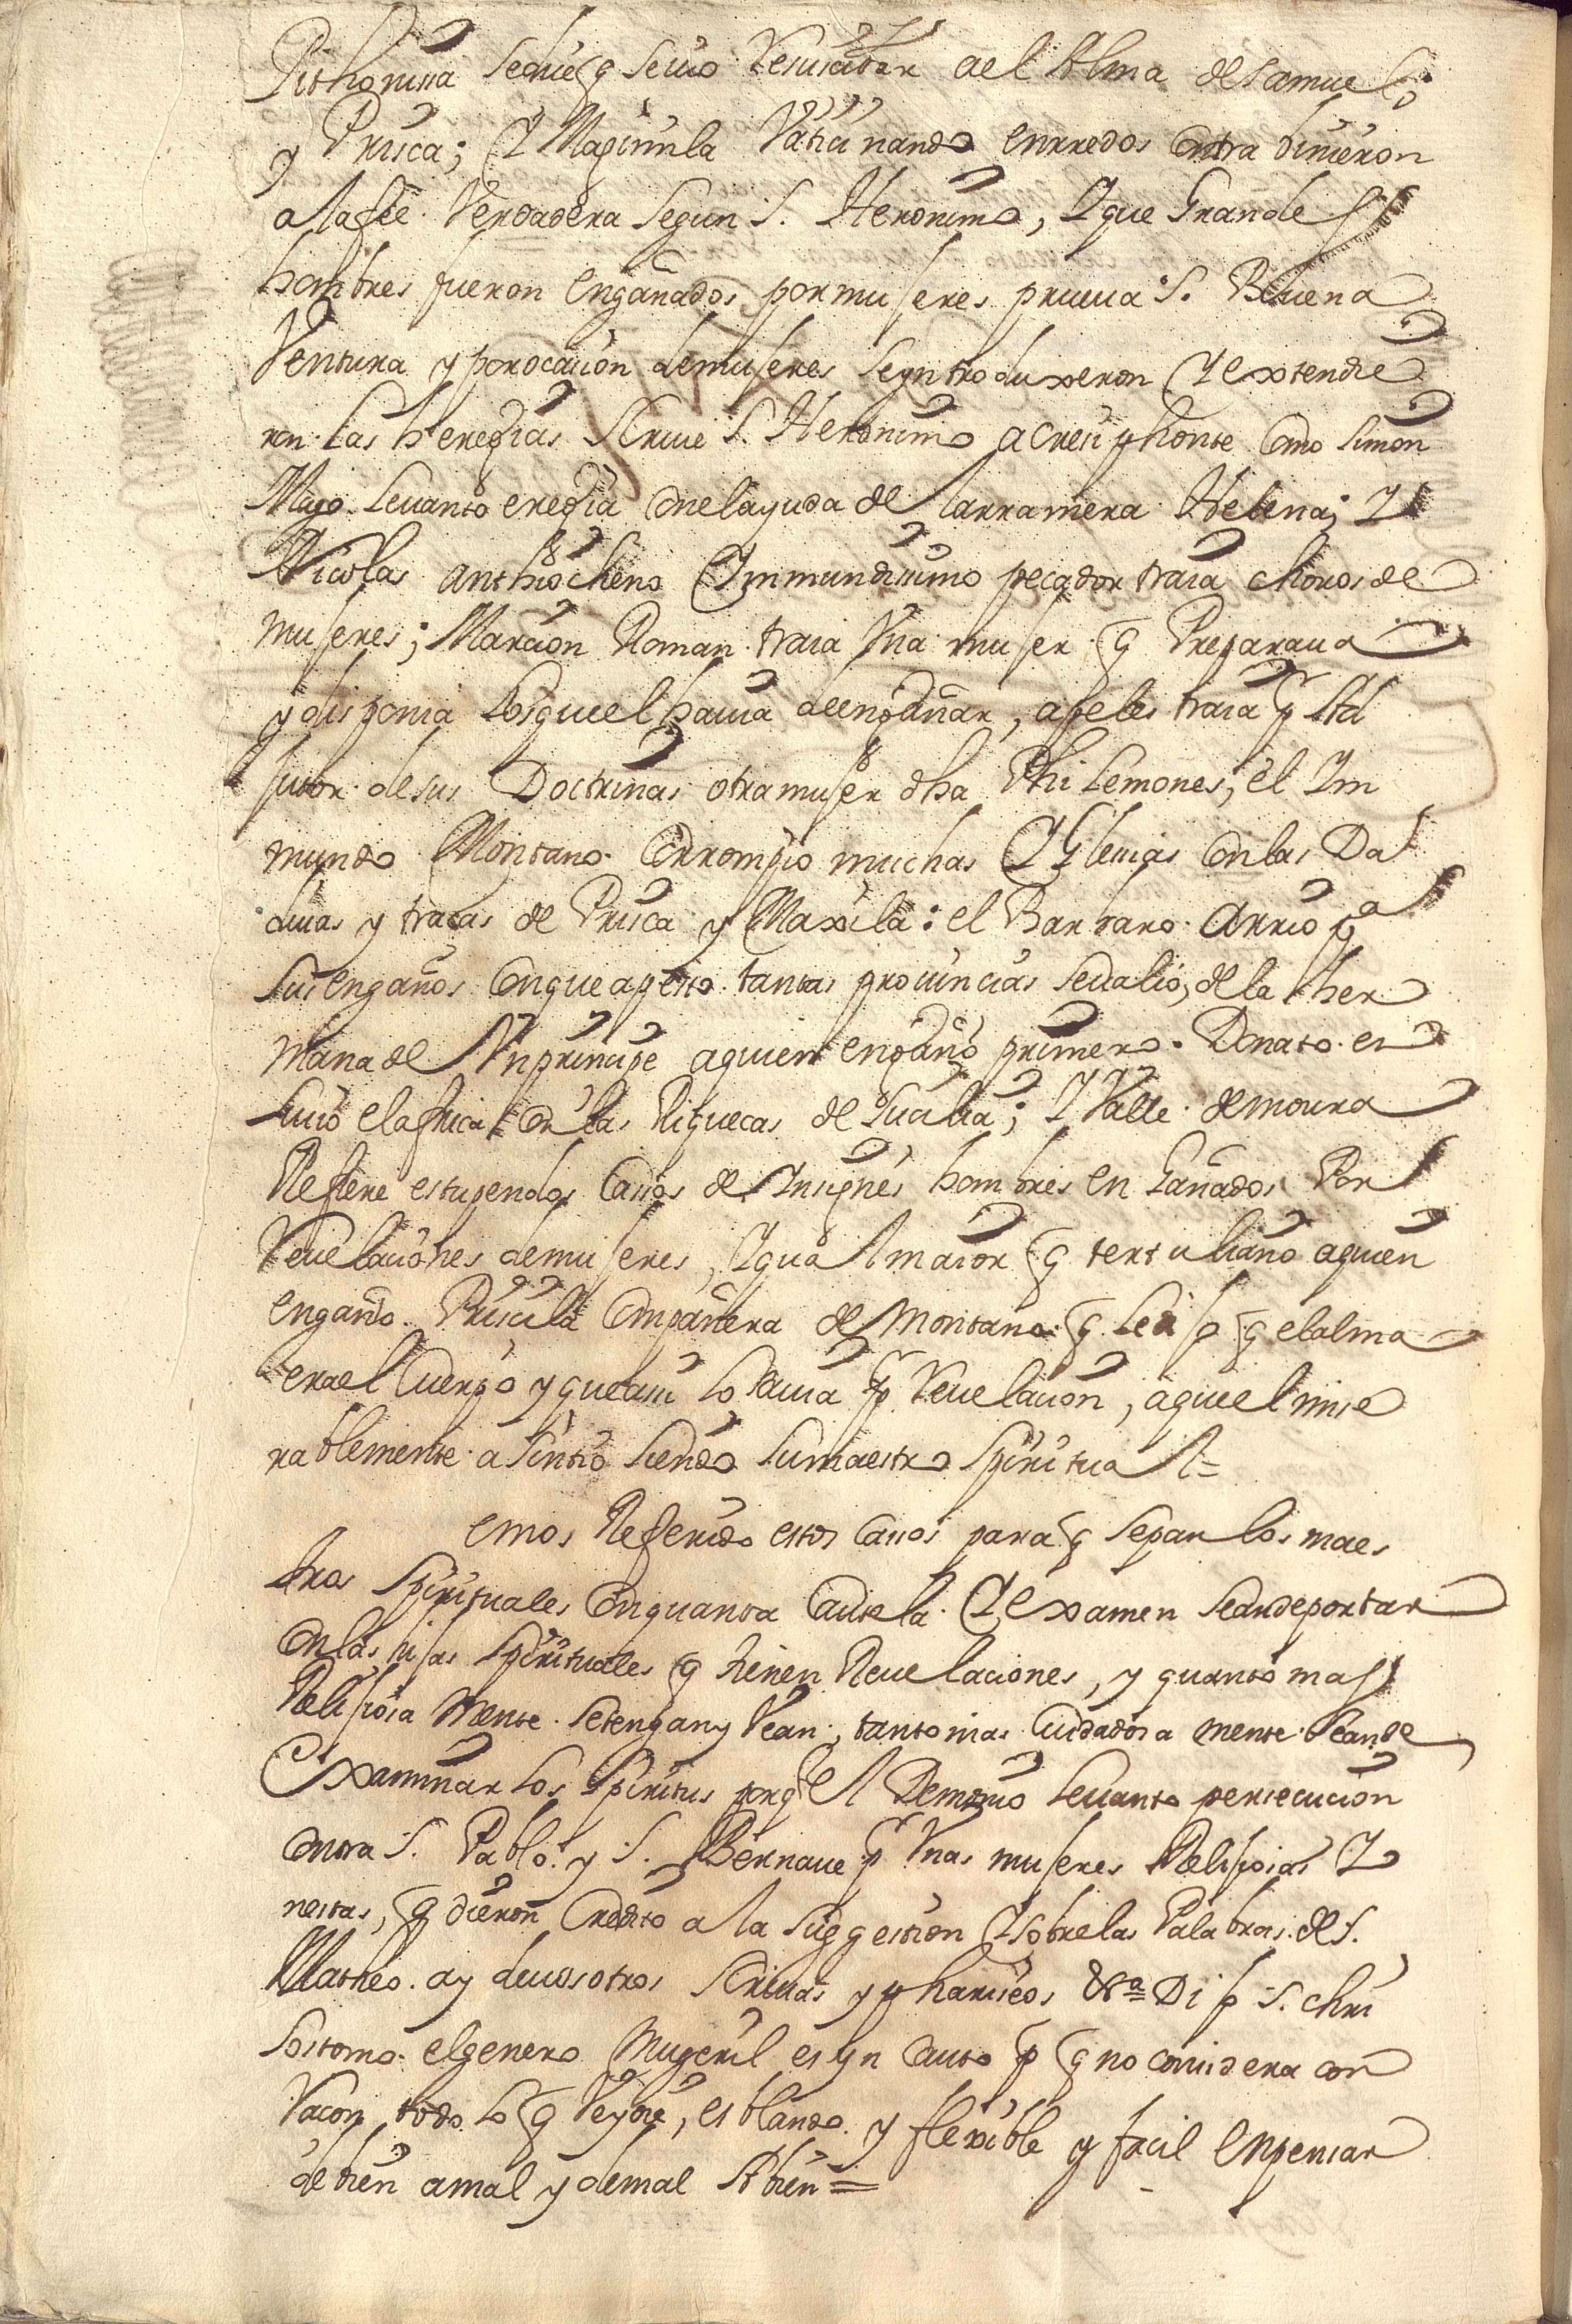 Pithonissa se dice q se vio Resusitar a el Alma de Samuel;
y Prisca; Y Magimila Vaticinando enrredos contra dixeron
a la fee Verdadera segun S. Heronimo, Y que Grandes
hombres fueron engañados por museres prueua S. Buena
Ventura y por ocacion de museres se yntroduxeron Y extendie
ron las heregias. Scriue S. Heronimo a Cresiphonte como Simon
Mago leuanto eregia con el ayuda de la rramera Helena; Y
Nicolas Anthiocheno Ynmundissimo pecador traia choros de
museres; Marcion Roman traia Vna muser q Preparaua
y disponia los que el hauia de engañar, apeles traia p Ad
jutor de sus Doctrinas otra muser dha Philemones; el Im
mundo Montano corrompio muchas Yglecias con las Da
diuas y tracas de Prisca y Maxila: el Barbaro Arrio pa
sus engaños con que apesto tantas prouincias se ualio, de la her
mana de Vn principe a quien engaño primero. Donato en
suio el africa con las Riquecas de Lucilia; Y Valle de moura
Refiere estupendos Cassos de Ynsignes hombres en Gañados Por
Reuelaciones de museres, Y qual maior q tertuliano a quien
engaño Priscila compañera de Montano q le dijo q el alma
era el Cuerpo y que assi lo sauia p Reuelacion, a que el mise
rablemente asintio siendo su maestro Spiritual=
emos Referido estos Cassos para q sepan los maes
tros Spirituales con quanta Cautela Y examen se an de portar
con las ijas Spirituales q tienen Reuelaciones, y quanto mas
Relisiosa Mente se tengan y Vean, tanto mas Cuidadosa mente se an de
Examinar los Spiritus porq el Demonio leuanto persecucion
contra S. Pablo y S. Bernaue p Vnas museres Relisiosas Y o
nestas, q dieron Credito a la suggestion Y sobre las Palabras de S.
Matheo ay de uosotros Scriuas y phariseos &a= Dijo S. Chri
sostomo el genero Mugeril es yn cauto p q no considera con
Racon todo lo q Ve y oie, es blando y flexible y facil en pensar
de bien a mal y de mal A bien=